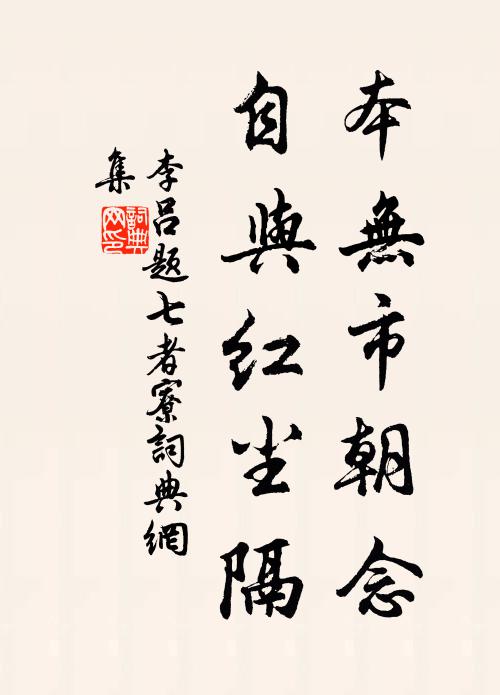 本無市朝念
自與红尘隔
李吕題七者寮詞典網
集
詞典网印